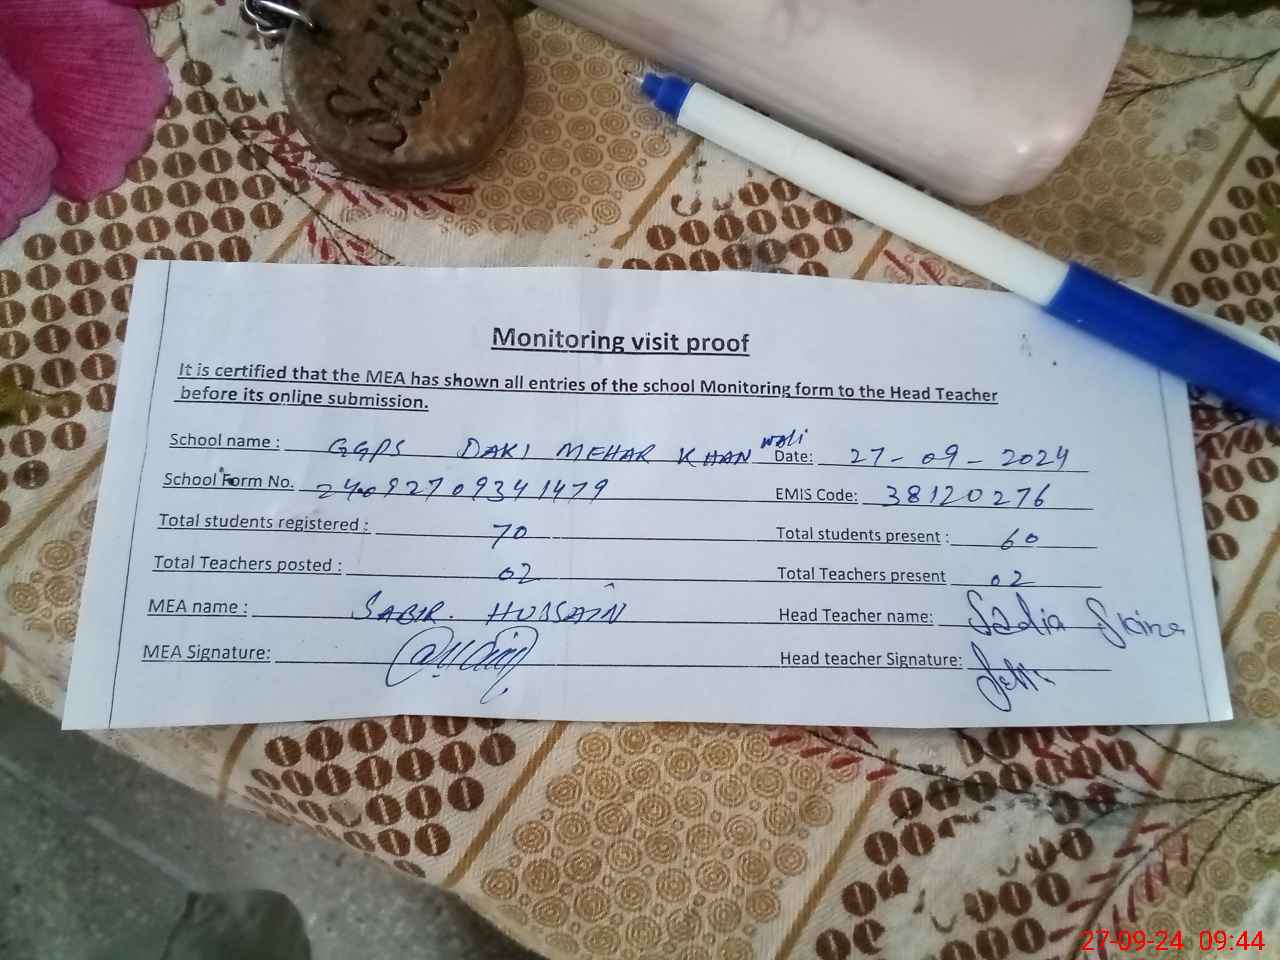 Sadia
Monitoring visit proof
It is certified that the MEA has shown all entries of the school Monitoring form to the Head Teacher
before its online submission.
School name : GGPS DAKI MEHAR KHAN wali Date: 27-09-2024
School Form No. 24092709341479 EMIS Code: 38120276
Total students registered : 70 Total students present : 60
Total Teachers posted : 02 Total Teachers present 02
MEA name : SABIR. HUSSAIN Head Teacher name: Sadia
MEA Signature: Head teacher Signature:
27-09-24 09:44